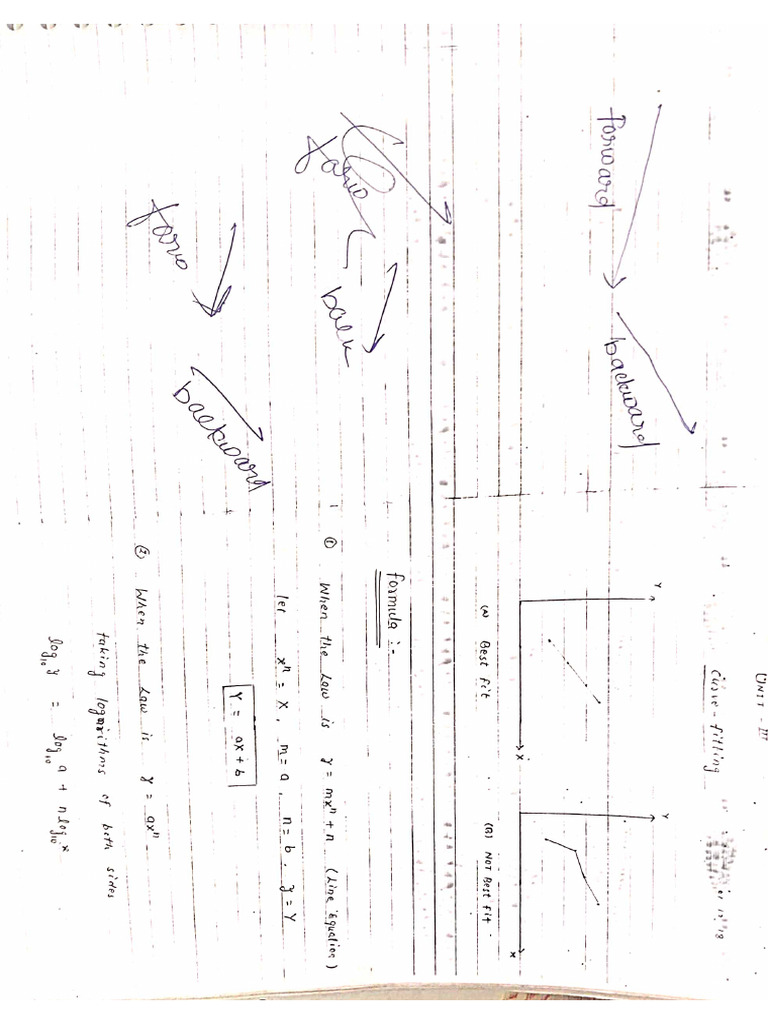 UNIT - III
Curve - fitting
Y
X
(A) Best fit
Y
X
(B) NOT Best fit
formula :-
① When the Law is y = mxⁿ + n (Line Equation)
let xⁿ = X, m = a, n = b, y = Y
Y = ax + b
② When the Law is y = axⁿ
taking logarithms of both sides
log₁₀ y = log₁₀ a + n log₁₀ x
forward
backward
back
backward